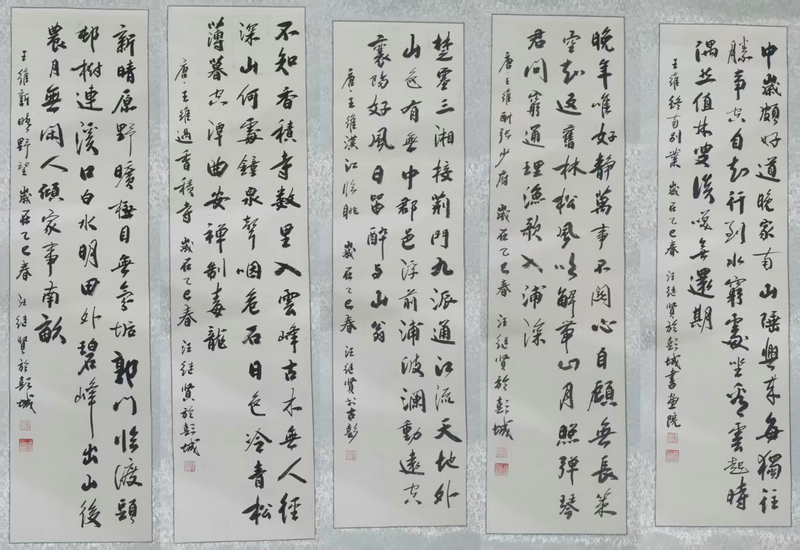 中歲頗好道晚家南山陲興來每獨往
勝事空自知行到水窮處坐看雲起時
偶然值林叟談笑無還期
王維終南別業 歲在乙巳春 汪継賢於彭城書画院
晚年唯好靜萬事不關心自顧無長策
空知返舊林松風吹解帶山月照彈琴
君問窮通理漁歌入浦深
唐王維酬張少府 歲在乙巳春 汪継賢於彭城
楚塞三湘接荊門九派通江流天地外
山色有無中郡邑浮前浦波瀾動遠空
襄陽好風日留醉与山翁
唐·王維漢江臨眺 歲在乙巳春 汪継賢於古彭
不知香積寺数里入雲峰古木無人徑
深山何處鐘泉聲咽危石日色冷青松
薄暮空潭曲安禪制毒龍
唐·王維過香積寺 歲在乙巳春 汪継賢於彭城
新晴原野曠極目無氛垢郭門臨渡頭
邨樹連溪口白水明田外碧峰出山後
農月無閑人傾家事南畝
王維新晴野望 歲在乙巳春 汪継賢於彭城